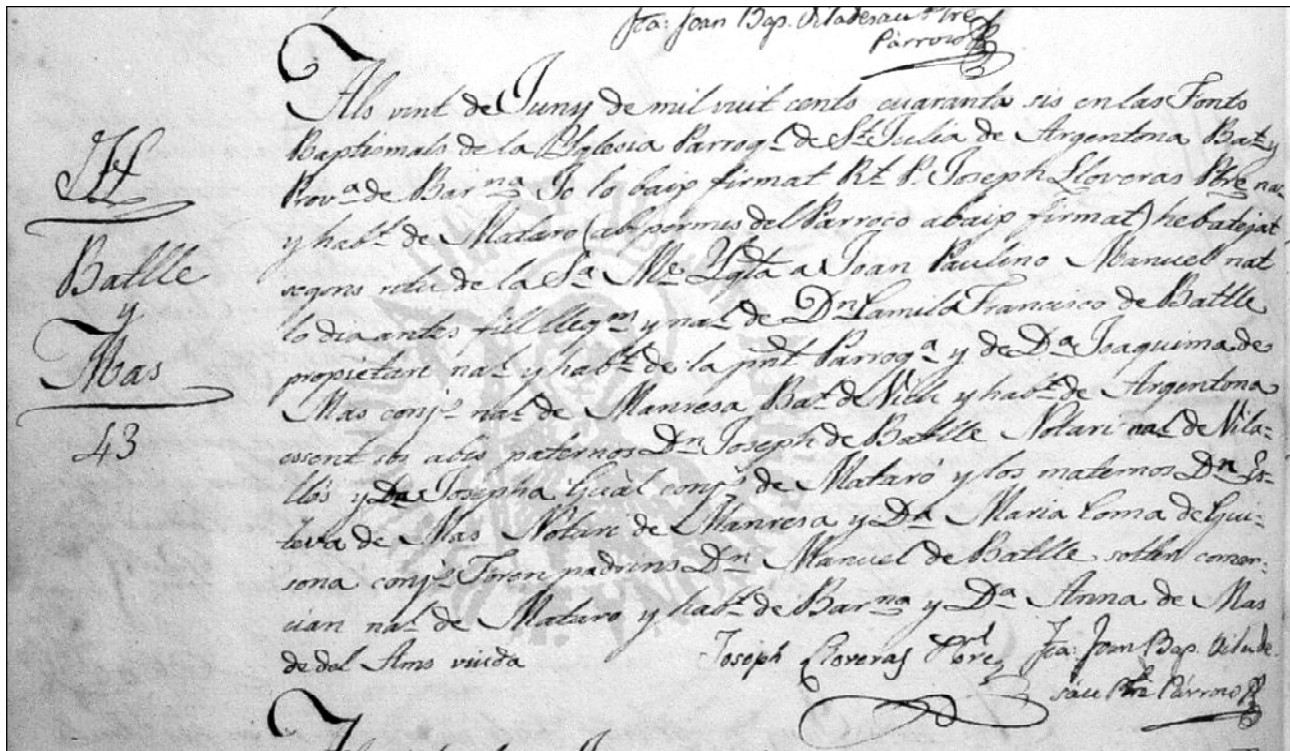 Fca: Joan Bap. Viladesau Pbre
Párroco
Als vint de Juny de mil vuit cents cuaranta sis en las Fonts
Baptismals de la Yglesia Parroql. de St. Julia de Argentona Bat. y
Prova. de Barna. Jo lo baix firmat Rt. P. Joseph Lloveras Pbre nal.
y habt. de Mataro (ab permis del Parroco abaix firmat) he batejat
segons ritu de la Sa. Me. Ygla. a Joan Paulino Manuel nat
lo dia antes fill llegm. y nal. de Dn. Camilo Francisco de Batlle
propietari nal. y habt. de la pnt Parroqa. y de Da. Joaquima de
Mas conjs. nal. de Manresa Bat. de Vich y habt. de Argentona
essent sos abis paterns Dn. Joseph de Batlle Notari nal. de Vila=
llós y Da. Josepha Gual conjs. de Mataró y los materns Dn. Es=
teva de Mas Notari de Manresa y Da. Maria Coma de Gui=
sona conjs. Foren padrins Dn. Manuel de Batlle solter comer=
cian nal. de Mataro y habt. de Barna. y Da. Anna de Mas
de del Ams viuda
Joseph Lloveras Pbre
Fca: Joan Bap. Vilade=
sau Pbre Párroco
Batlle
y
Mas
43